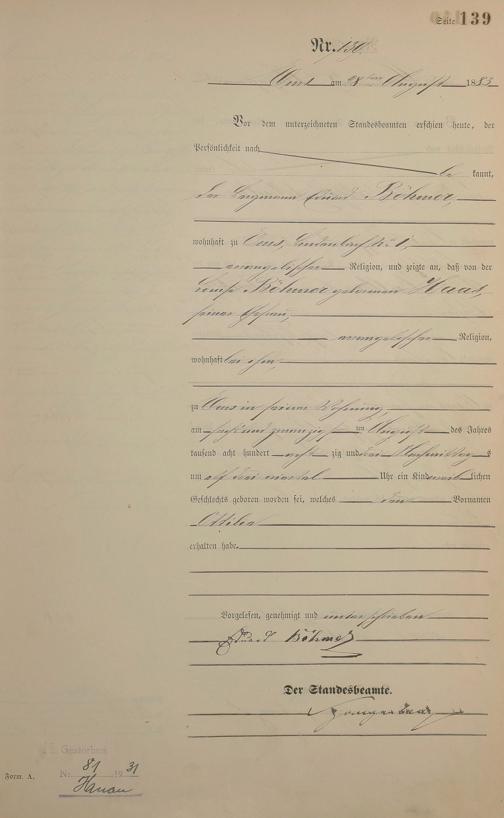 Seite 139
Nr. 130.
Ems am 28ten August 1883
Vor dem unterzeichneten Standesbeamten erschien heute, der
Persönlichkeit nach
be kannt,
der Bergmann Eduard Böhmer,
wohnhaft zu Ems, Lindenbach № 1,
evangelischer Religion, und zeigte an, daß von der
Louise Böhmer geborenen Haas,
seiner Ehefrau,
evangelischer Religion,
wohnhaft bei ihm,
zu Ems in seiner Wohnung,
am und zwanzigsten August des Jahres
tausend acht hundert acht zig und drei Nachmittags
um elf drei viertel Uhr ein Kind weib lichen
Geschlechts geboren worden sei, welches den Vornamen
Ottilie
erhalten habe.
Vorgelesen, genehmigt und unterschrieben
Eduard Böhmer
Der Standesbeamte.
Gestorben
Nr. 81 19 31
Hanau
Form. A.